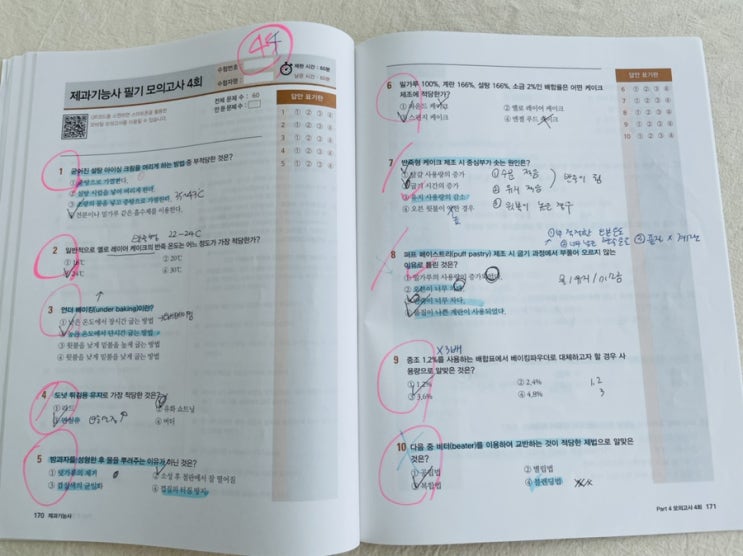 44
제과기능사 필기 모의고사 4회
수험번호
수험자명
제한 시간 : 60분
남은 시간 : 60분
전체 문제 수 : 60
안 푼 문제 수 :
답안 표기란
1 ① ② ③ ④
2 ① ② ③ ④
3 ① ② ③ ④
4 ① ② ③ ④
5 ① ② ③ ④
1 굳어진 설탕 아이싱 크림을 여리게 하는 방법 중 부적당한 것은?
① 중탕으로 가열한다.
② 설탕 시럽을 넣어 여리게 한다.
③ 소량의 물을 넣고 중탕으로 가열한다. 35~43℃
④ 전분이나 밀가루 같은 흡수제를 이용한다.
22-24℃
2 일반적으로 옐로 레이어 케이크의 반죽 온도는 어느 정도가 가장 적당한가?
① 16℃ ② 20℃
③ 24℃ ④ 30℃
3 언더 베이킹(under baking)이란?
① 낮은 온도에서 장시간 굽는 방법
② 높은 온도에서 단시간 굽는 방법
③ 윗불을 낮게 밑불을 높게 굽는 방법
④ 윗불을 낮게 밑불을 낮게 굽는 방법
4 도넛 튀김용 유지로 가장 적당한 것은?
① 라드 ② 유화 쇼트닝
③ 면실유 ④ 버터
5 밤과자를 성형한 후 물을 뿌려주는 이유가 아닌 것은?
① 덧가루의 제거 ② 소성 후 철판에서 잘 떨어짐
③ 껍질색의 균일화 ④ 껍질의 터짐 방지
170 제과기능사
6 밀가루 100%, 계란 166%, 설탕 166%, 소금 2%인 배합률은 어떤 케이크 제조에 적당한가?
① 파운드 케이크 ② 옐로 레이어 케이크
③ 스펀지 케이크 ④ 엔젤 푸드 케이크
답안 표기란
6 ① ② ③ ④
7 ① ② ③ ④
8 ① ② ③ ④
9 ① ② ③ ④
10 ① ② ③ ④
7 반죽형 케이크 제조 시 중심부가 솟는 원인은?
① 달걀 사용량의 증가
② 굽기 시간의 증가
③ 유지 사용량의 감소
④ 오븐 윗불이 약한 경우
① 수분 적음
② 유지 적음
8 퍼프 페이스트리(puff pastry) 제조 시 굽기 과정에서 부풀어 오르지 않는
이유로 틀린 것은?
① 밀가루의 사용량이 증가되었다.
② 오븐이 너무 차다.
③ 반죽이 너무 차다.
④ 품질이 나쁜 계란이 사용되었다.
X 3배
9 중조 1.2%를 사용하는 배합표에서 베이킹파우더로 대체하고자 할 경우 사
용량으로 알맞은 것은?
① 1.2% ② 2.4% 1.2
③ 3.6% ④ 4.8% 3
10 다음 중 비터(beater)를 이용하여 교반하는 것이 적당한 제법으로 알맞은
것은?
① 공립법 ② 별립법
③ 복합법 ④ 블렌딩법
Part 4 모의고사 4회 171